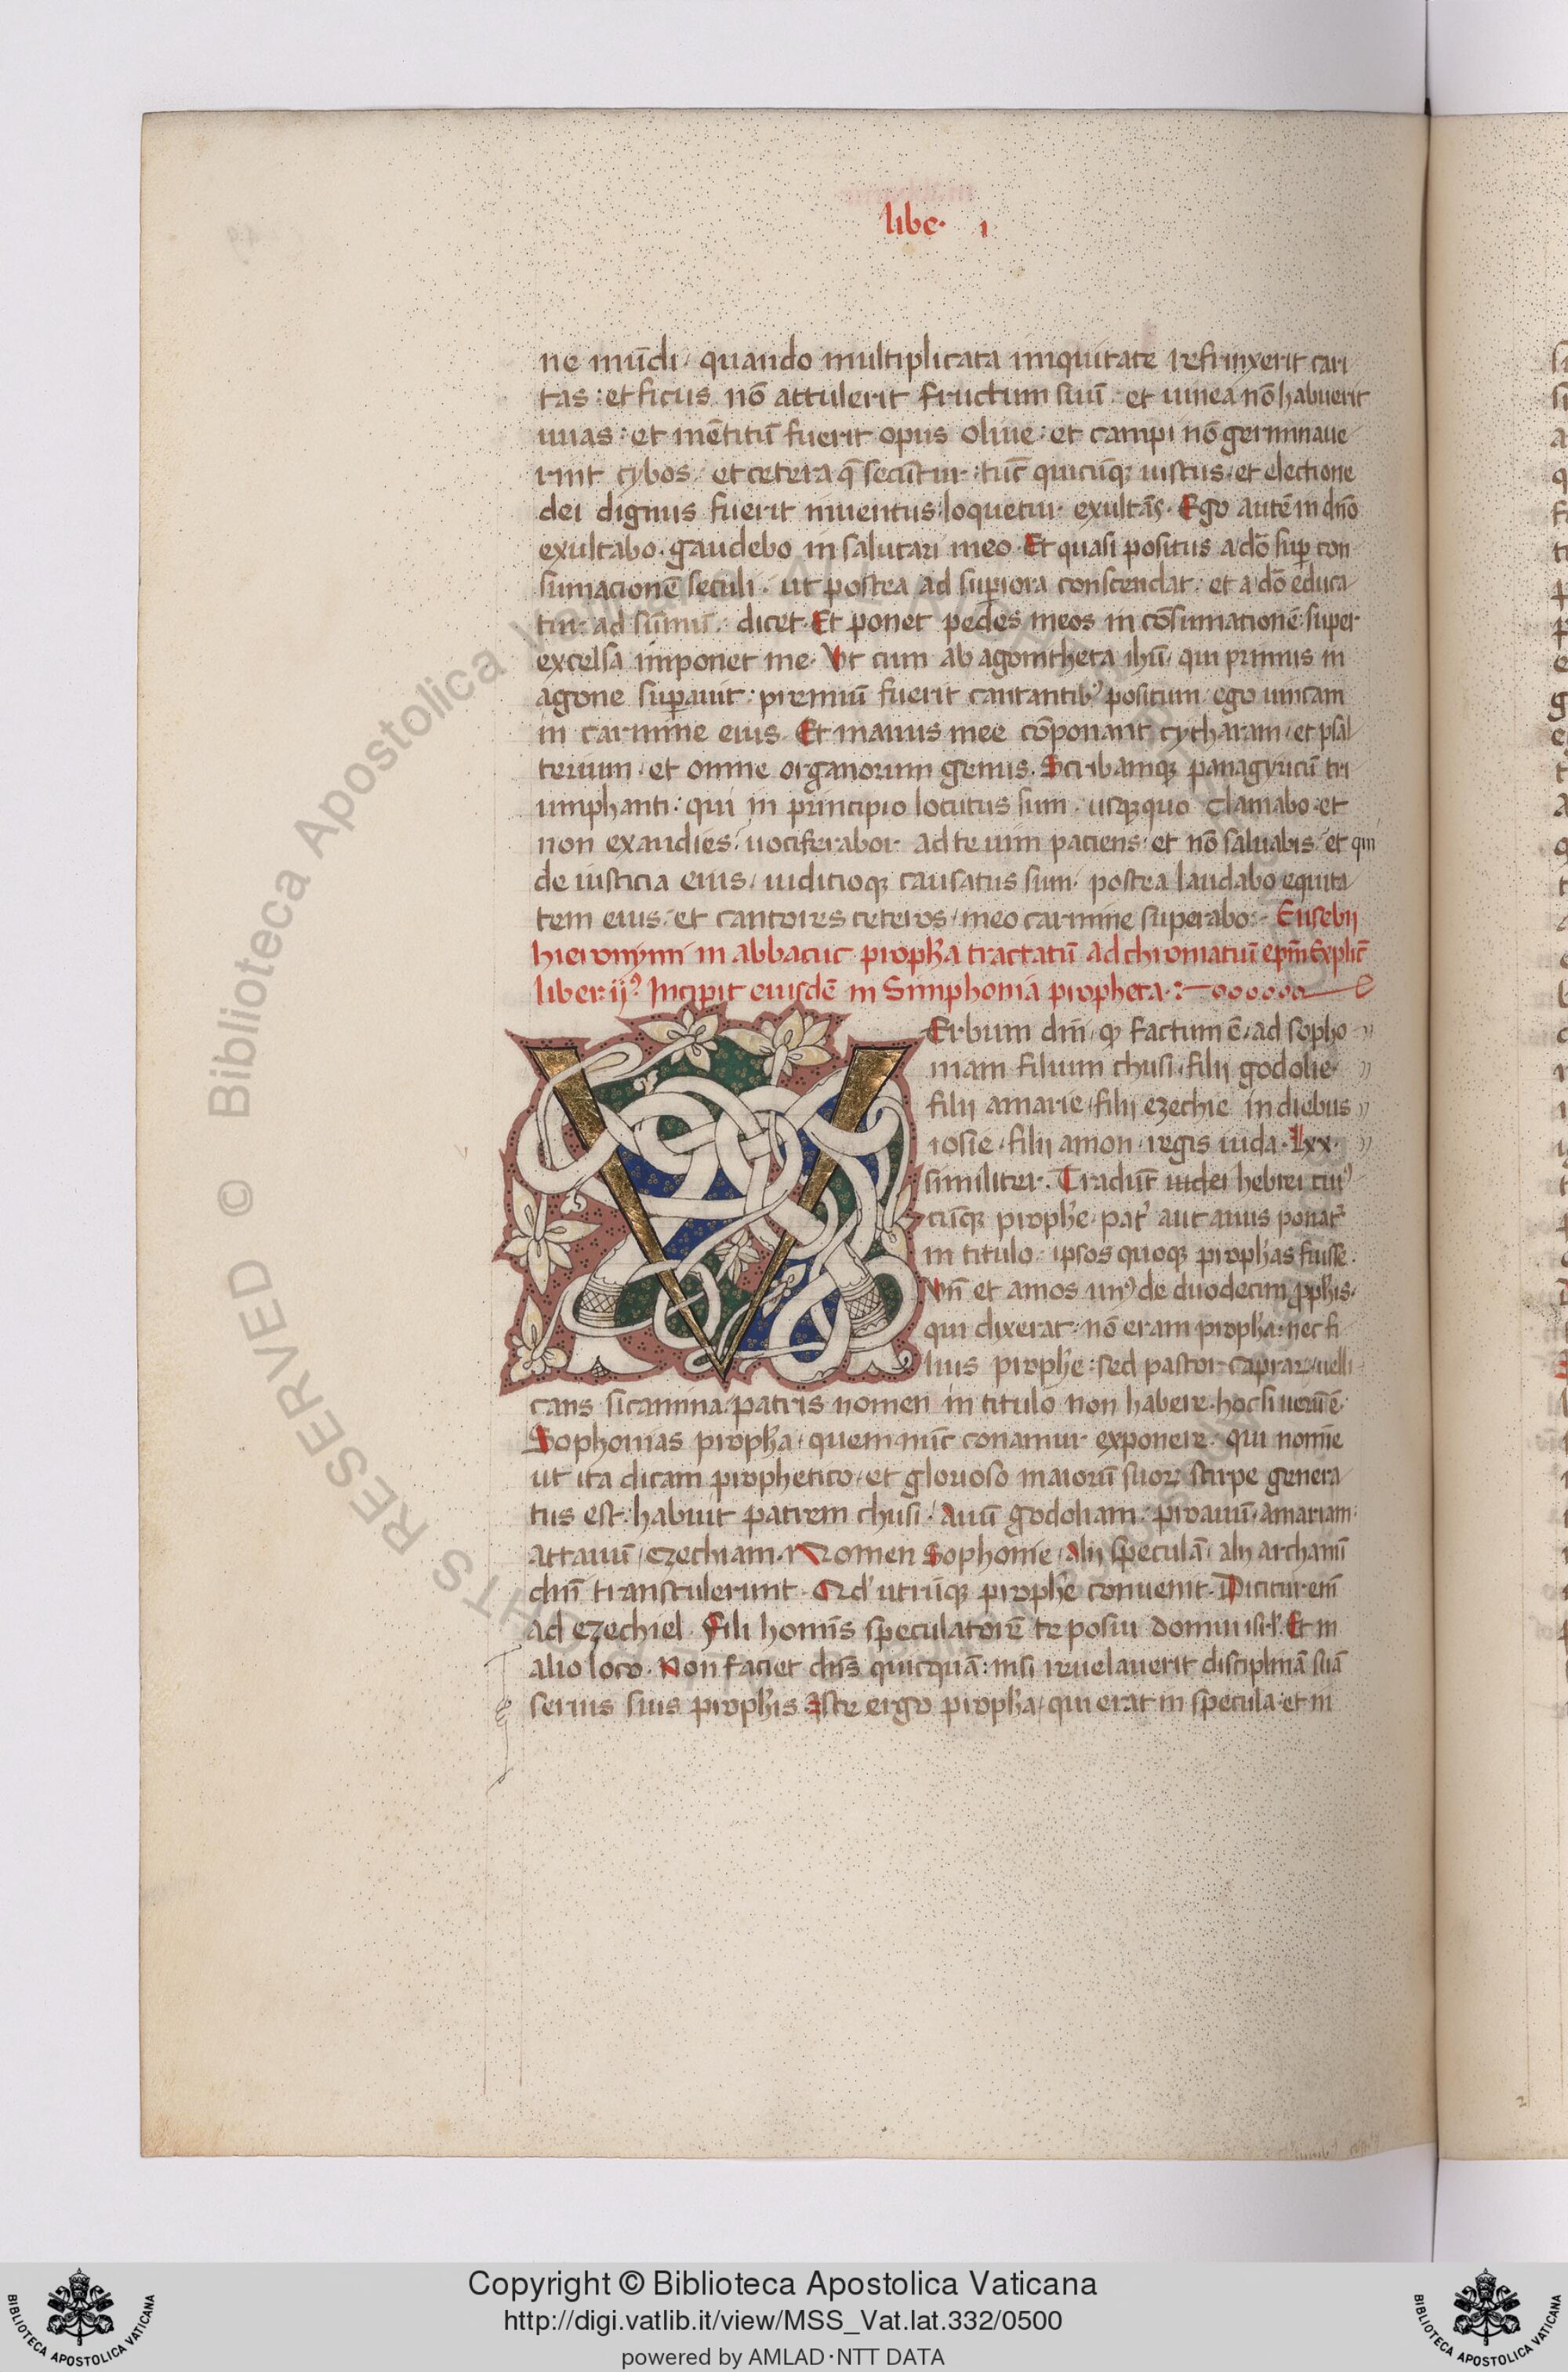 libe· i
ne mūdi / quando multiplicata iniquitate refrinxerit cari
tas : et ficus nō attulerit fructum suū · et uinea nō habuerit
uuas : et mētitū fuerit opus oliue : et campi nō germinaue
rint cybos / et cetera q̄ secūtur : tūc quicūq; iustus / et electione
dei dignus fuerit inuentus / loquetur exultās · Ego autē in dn̄o
exultabo · gaudebo in salutari meo · Et quasi positus a dō sup con
sumacionē seculi · ut postea ad supiora conscendat : et a dō educa
tur ad sūmū · dicet · Et ponet pedes meos in cōsumacionē : super
excelsa imponet me · Vt cum ab agonitheta ihū / qui primus in
agone supauit : premiū fuerit cantantib⁹ positum / ego uincam
in carmine eius · Et manus mee cōponant cytharam / et psal
terium · et omne organorum genus · Scribamq; panagyricū tri
umphanti : qui in principio locutus sum · usq;quo clamabo · et
non exaudies : uociferabor ad te uim paciens / et nō saluabis / et qui
de iusticia eius / iudicioq; causatus sum / postea laudabo equita
tem eius / et cantores ceteros / meo carmine superabo :- Eusebij
hieronymi in abbacuc propħa tractatū ad chromatiū ep̄m Explic̄
liber ij⁹ Incipit eiusdē in Simphonia propheta ·:
VErbum dn̄i / q̄ factum ē / ad sopho
niam filium chusi / filij godolie
filij amarie / filij ezechie in diebus
iosie / filij amon / regis iuda · Lxx ·
similiter · Tradūt iudei hebrei cui⁹
cūq; prophe / pat̉ aut auus ponat̉
in titulo · ipsos quoq; prophas fuisse ·
Vn̄ et amos un⁹ de duodecim pphis /
qui dixerat : nō eram propħa : nec fi
lius prophe : sed pastor caprar / uelli
cans sicamina / patris nomen in titulo non habere · hoc si uerū ē ·
Sophonias propħa / quem nūc conamur exponere · qui nomīe
ut ita dicam prophetico / et glorioso maiorū suor; stirpe genera
tus est : habuit patrem chusi / auū godoliam : proauū / amariam ·
attauū / ezechiam · Nomen Sophonie / alij speculā / alij archanū
dn̄i transtulerunt · Qd̉ utrūq; prophe conuenit · Dicitur enī
ad ezechiel · Fili homīs speculatorē te posui domui isrl̉ · Et in
alio loco · Non faciet dn̄s quicquā : nisi reuelauerit disciplinā suā
seruis suis prophis · Iste ergo propħa / qui erat in specula · et in
© Biblioteca Apostolica Vaticana
ALL RIGHTS RESERVED
Copyright © Biblioteca Apostolica Vaticana
http://digi.vatlib.it/view/MSS_Vat.lat.332/0500
powered by AMLAD·NTT DATA
BIBLIOTECA APOSTOLICA VATICANA
BIBLIOTECA APOSTOLICA VATICANA